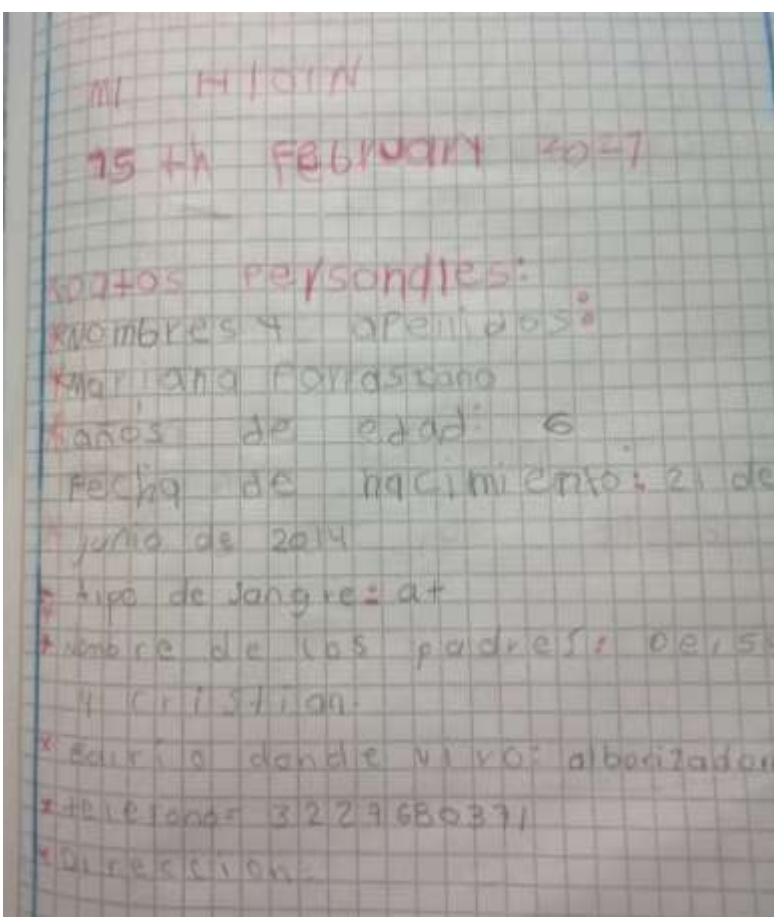 MI
15 th FEBRUARY
Datos Personales:
Nombres y apellidos:
Mariana
años de edad: 6
Fecha de nacimiento: 21 de
junio de 2014
tipo de sangre: a+
Nombre de los padres: Deis
y cristian.
Barrio donde vivo:
telefono= 3229680371
Direccion=